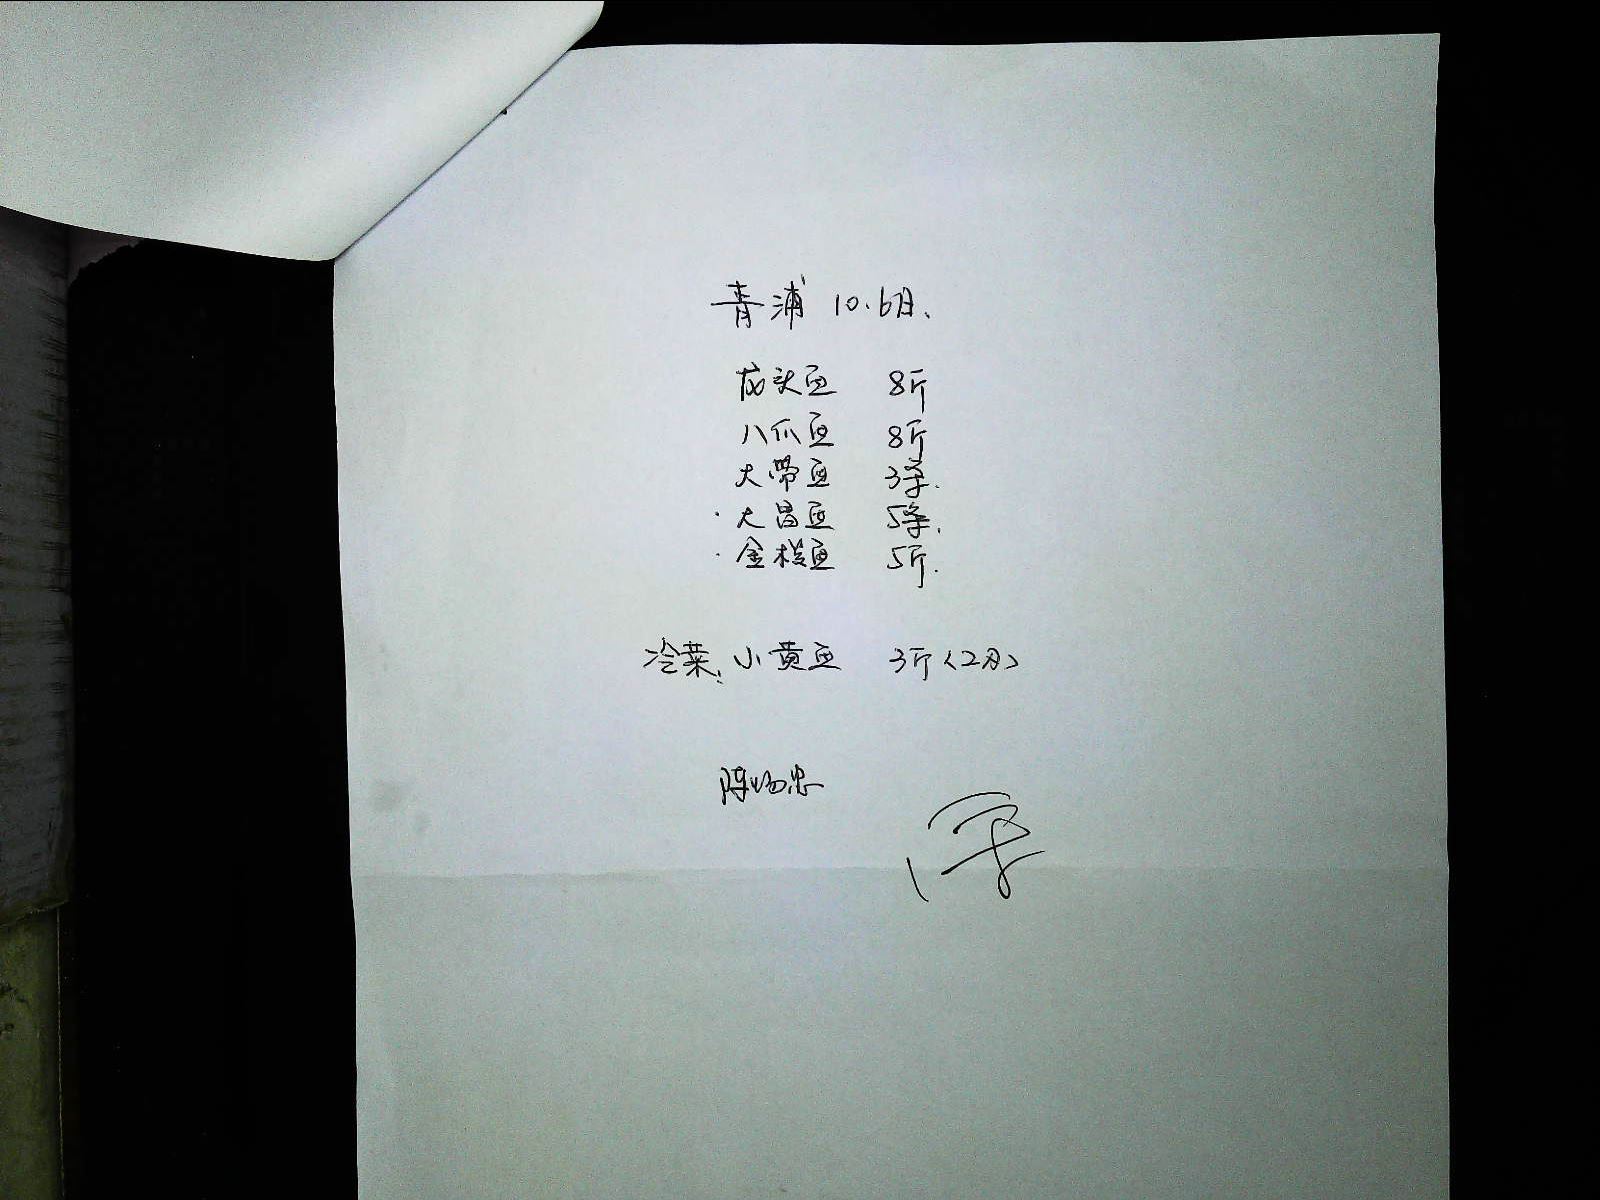 青浦 10.6日.
龙头鱼 8斤
八爪鱼 8斤
大带鱼 3条.
·大昌鱼 5条.
·金枪鱼 5斤.
冷菜: 小黄鱼 3斤(2月)
陈忠